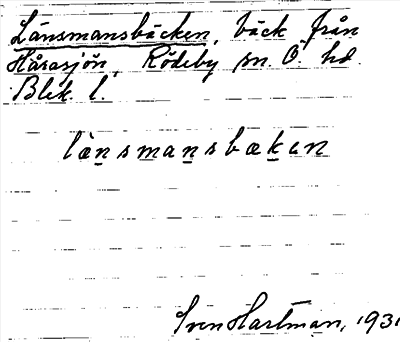 Länsmansbäcken, bäck från
Hårasjön, Rödeby sn. Ö. hd.
Blek. l.
lænsmansbæken
Sven Hartman, 1931